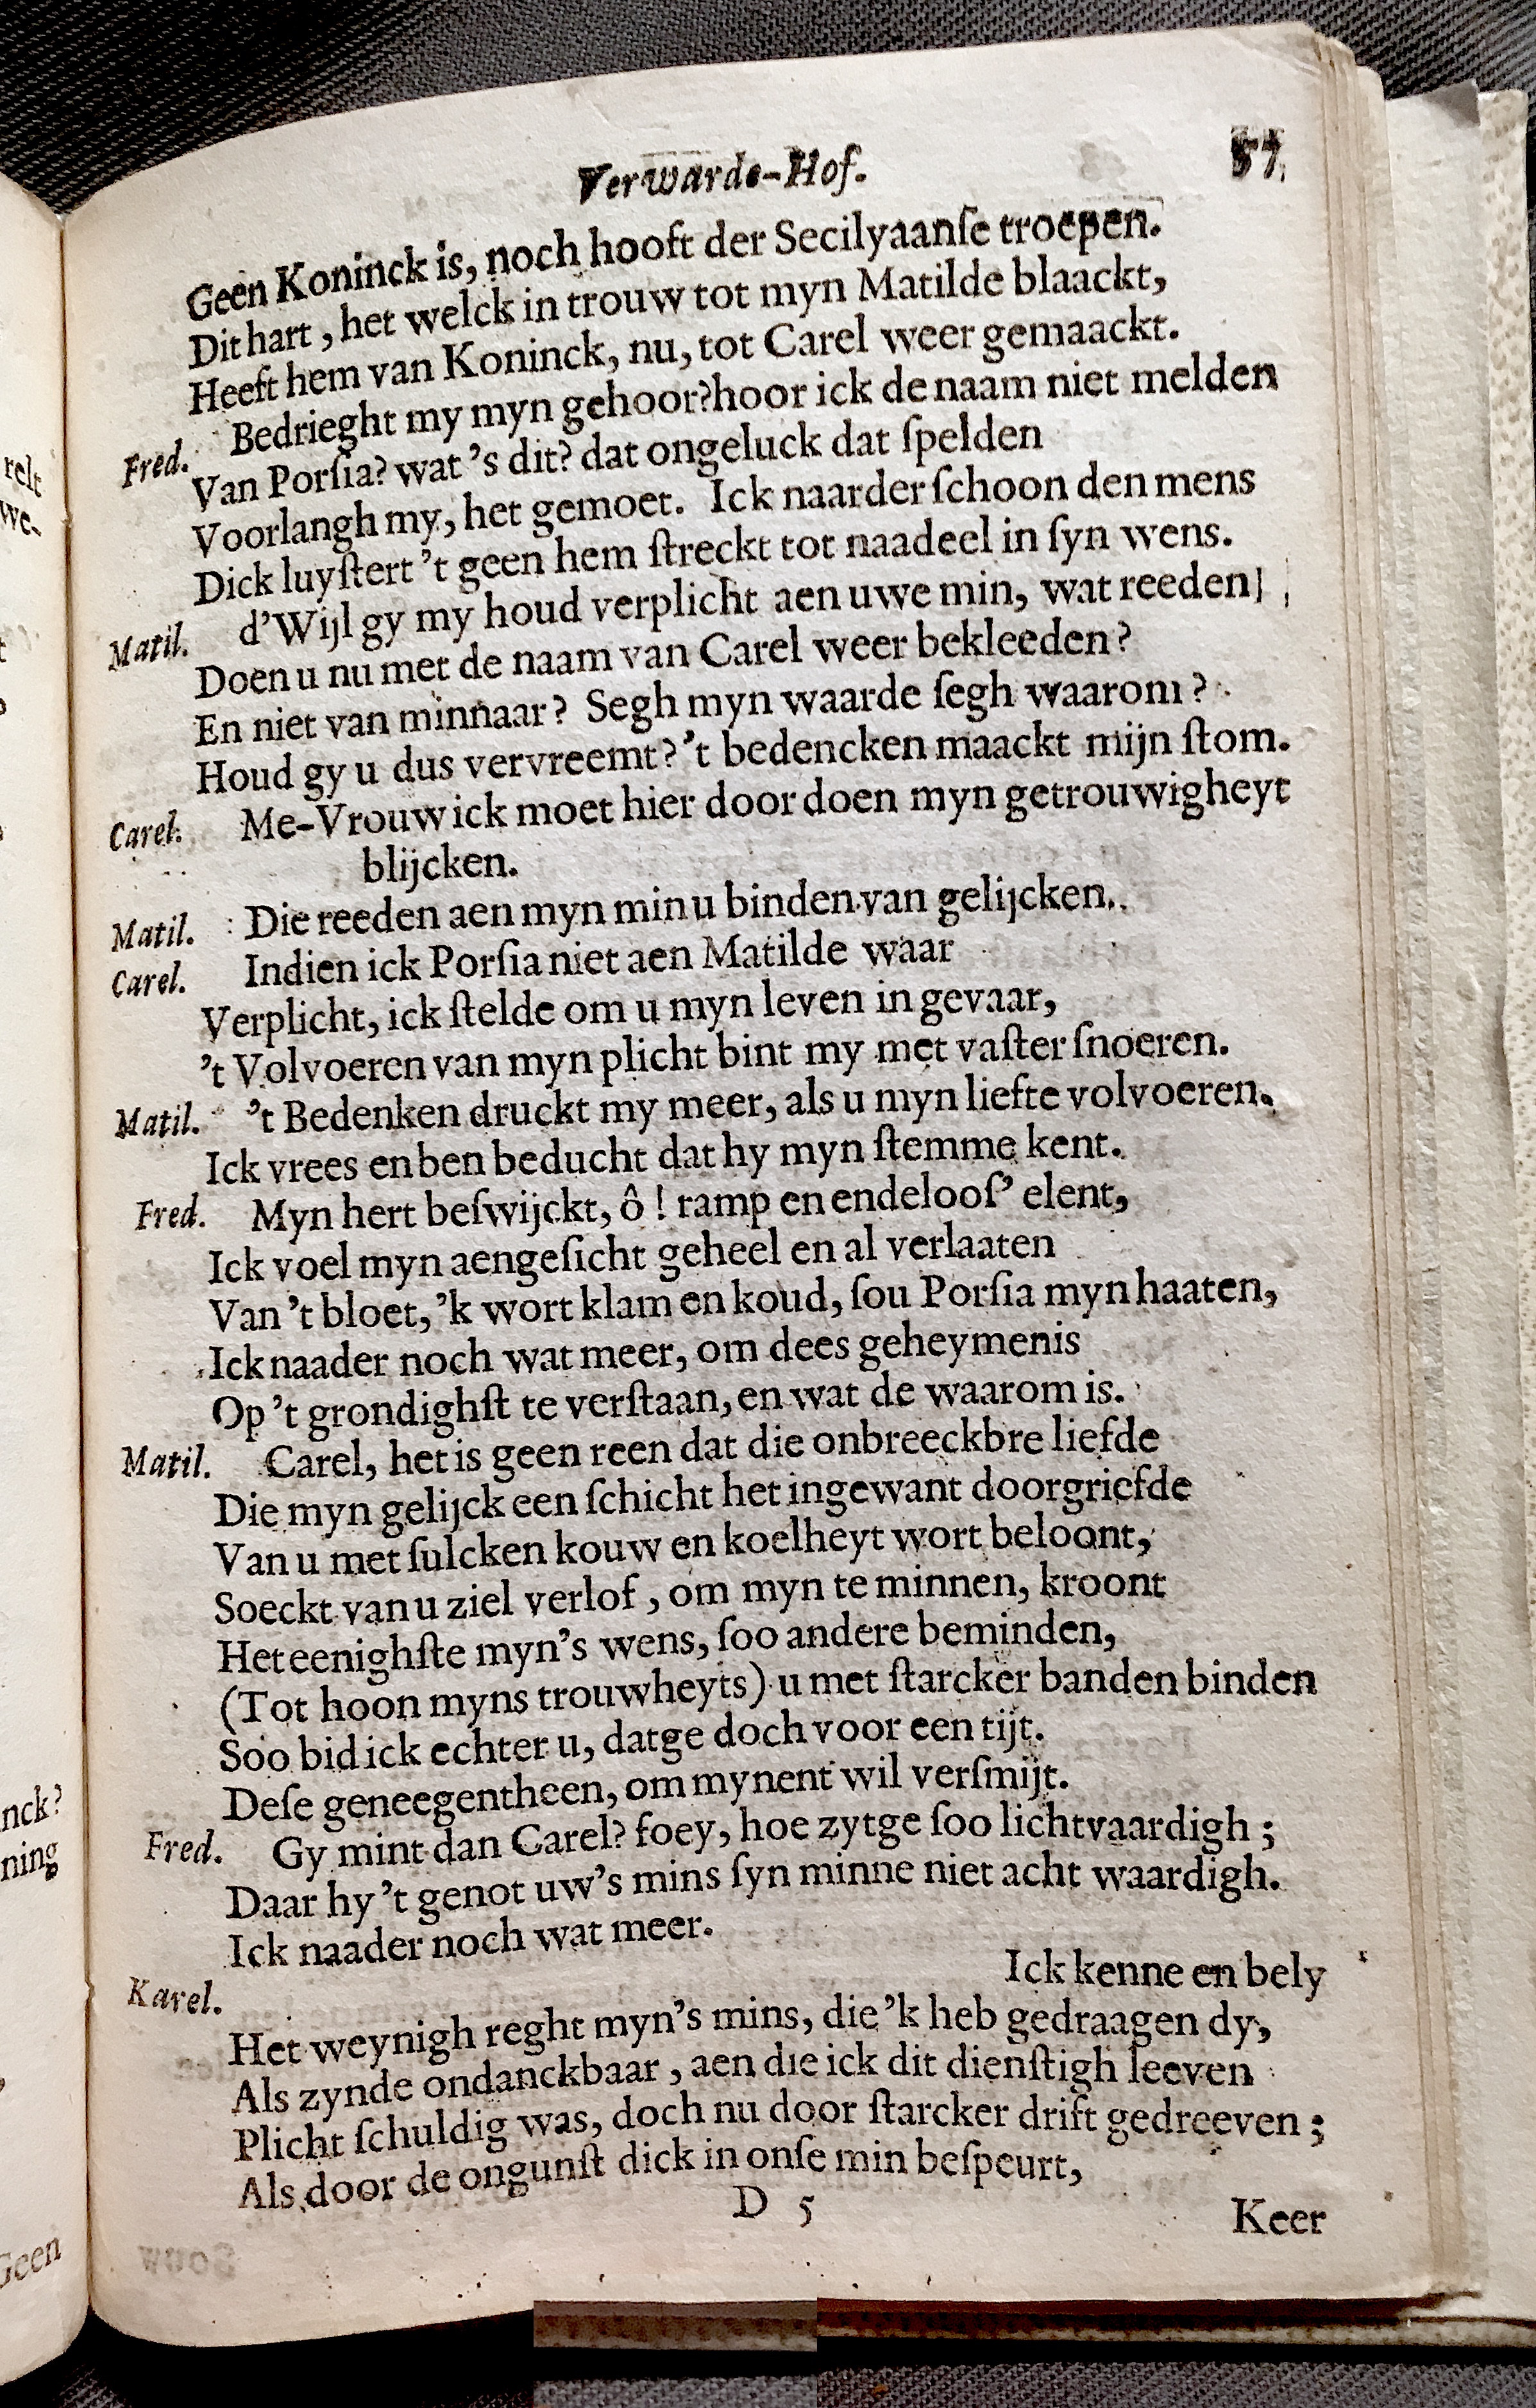 Verwarde-Hof. 57
Geen Koninck is, noch hooft der Secilyaanſe troepen.
Dit hart, het welck in trouw tot myn Matilde blaackt,
Heeft hem van Koninck, nu, tot Carel weer gemaackt.
Fred. Bedrieght my myn gehoor? hoor ick de naam niet melden
Van Porſia? wat 's dit? dat ongeluck dat ſpelden
Voorlangh my, het gemoet. Ick naarder ſchoon den mens
Dick luyſtert 't geen hem ſtreckt tot naadeel in ſyn wens.
Matil. d'Wijl gy my houd verplicht aen uwe min, wat reeden
Doen u nu met de naam van Carel weer bekleeden?
En niet van minnaar? Segh myn waarde ſegh waarom?
Houd gy u dus vervreemt? 't bedencken maackt mijn ſtom.
Carel. Me-Vrouw ick moet hier door doen myn getrouwigheyt
blijcken.
Matil. Die reeden aen myn min u binden van gelijcken.
Carel. Indien ick Porſia niet aen Matilde waar
Verplicht, ick ſtelde om u myn leven in gevaar,
't Volvoeren van myn plicht bint my met vaſter ſnoeren.
Matil. 't Bedenken druckt my meer, als u myn liefte volvoeren.
Ick vrees en ben beducht dat hy myn ſtemme kent.
Fred. Myn hert beſwijckt, ô! ramp en endelooſ' elent,
Ick voel myn aengeſicht geheel en al verlaaten
Van 't bloet, 'k wort klam en koud, ſou Porſia myn haaten,
Ick naader noch wat meer, om dees geheymenis
Op 't grondighſt te verſtaan, en wat de waarom is.
Matil. Carel, het is geen reen dat die onbreeckbre liefde
Die myn gelijck een ſchicht het ingewant doorgriefde
Van u met ſulcken kouw en koelheyt wort beloont,
Soeckt van u ziel verlof, om myn te minnen, kroont
Het eenighſte myn's wens, ſoo andere beminden,
(Tot hoon myns trouwheyts) u met ſtarcker banden binden
Soo bid ick echter u, dat ge doch voor een tijt.
Deſe geneegentheen, om mynent wil verſmijt.
Fred. Gy mint dan Carel? foey, hoe zytge ſoo lichtvaardigh;
Daar hy 't genot uw's mins ſyn minne niet acht waardigh.
Ick naader noch wat meer.
Karel. Ick kenne en bely
Het weynigh reght myn's mins, die 'k heb gedraagen dy,
Als zynde ondanckbaar, aen die ick dit dienſtigh leeven
Plicht ſchuldig was, doch nu door ſtarcker drift gedreeven;
Als door de ongunſt dick in onſe min beſpeurt,
D 5 Keer
relt
we-
nck?
ning
Geen